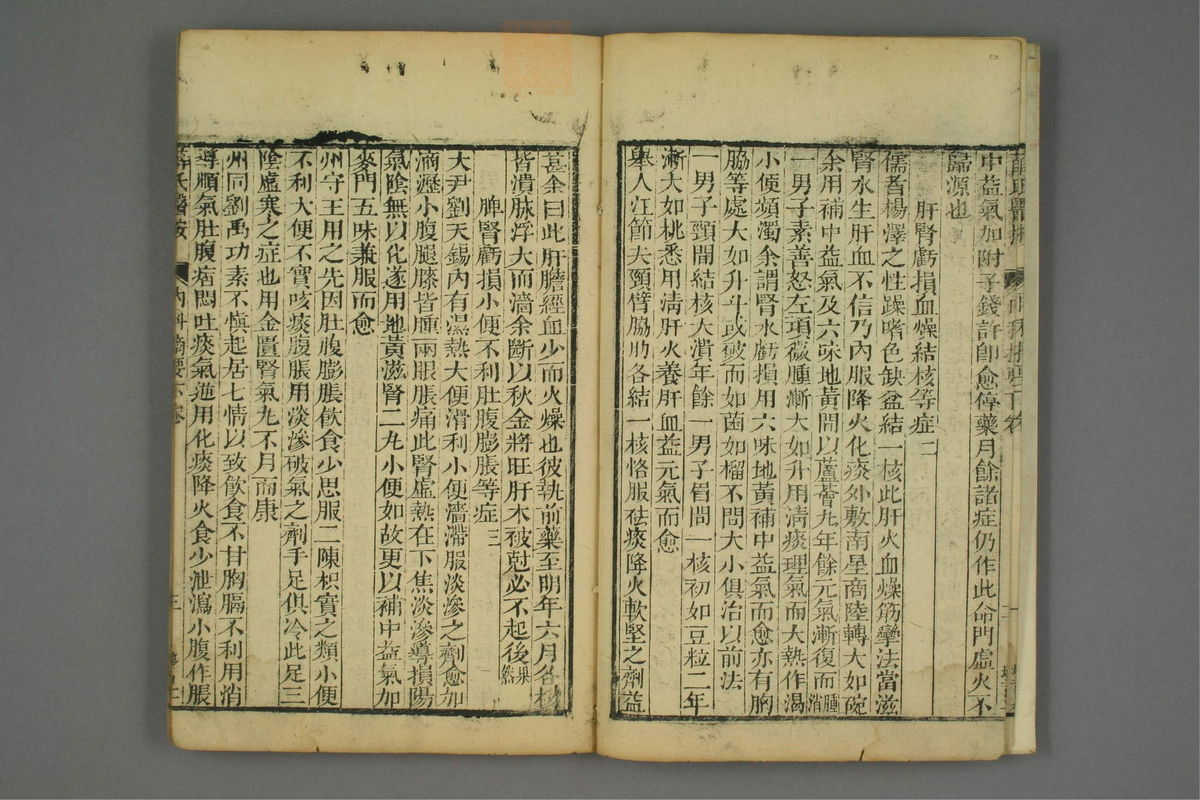 中益氣加附子錢許卽愈停藥月餘諸症仍作此命門虛火不
歸源也
肝腎虧損血燥結核等症二
儒者楊澤之性躁嗜色缺盆結一核此肝火血燥筋攣法當滋
腎水生肝血不信乃內服降火化痰外敷南星商陸轉大如碗
余用補中益氣及六味地黃間以蘆薈丸年餘元氣漸復而腫消
一男子素善怒左項微腫漸大如升用清痰理氣而大熱作渴
小便頻濁余謂腎水虧損用六味地黃補中益氣而愈亦有胸
脇等處大如升斗或破而如菌如榴不問大小俱治以前法
一男子頸間結核大潰年餘一男子眉間一核初如豆粒二年
漸大如桃悉用清肝火養肝血益元氣而愈
舉人江節夫頸臂脇肋各結一核恪服祛痰降火軟堅之劑益
甚余曰此肝膽經血少而火燥也彼執前藥至明年六月各核
皆潰脉浮大而濇余斷以秋金將旺肝木被尅必不起後果然
脾腎虧損小便不利肚腹膨脹等症三
大尹劉天錫內有濕熱大便滑利小便濇滯服淡滲之劑愈加
滴瀝小腹腿膝皆腫兩眼脹痛此腎虛熱在下焦淡滲導損陽
氣陰無以化遂用地黃滋腎二丸小便如故更以補中益氣加
麥門五味兼服而愈
州守王用之先因肚腹膨脹飮食少思服二陳枳實之類小便
不利大便不實咳痰腹脹用淡滲破氣之劑手足俱冷此足三
陰虛寒之症也用金匱腎氣丸不月而康
州同劉禹功素不愼起居七情以致飮食不甘胸膈不利用消
導順氣肚腹痞悶吐痰氣逆用化痰降火食少泄瀉小腹作脹
薛氏醫按 內科摘要下卷 三